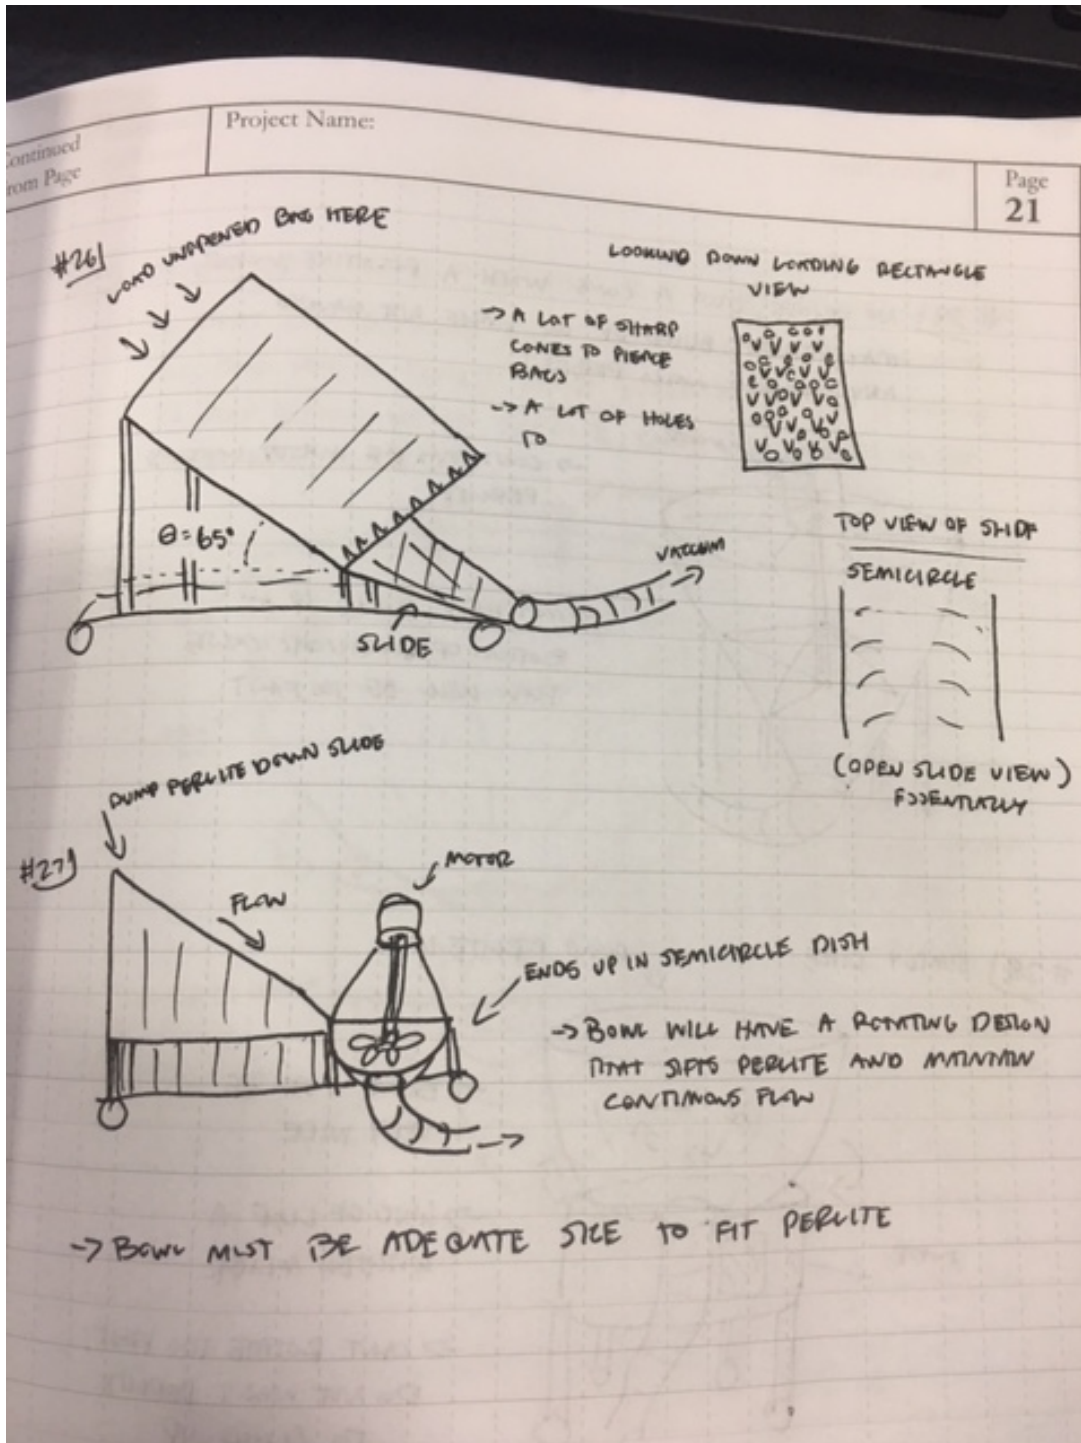 Continued
From Page
Project Name:
Page
21
#26
LOAD UNOPENED BAG HERE
LOOKING DOWN LOADING RECTANGLE
VIEW
-> A LOT OF SHARP
CONES TO PIERCE
BAGS
-> A LOT OF HOLES
TO
θ = 65°
SLIDE
VACCUM
TOP VIEW OF SLIDE
SEMICIRCLE
(OPEN SLIDE VIEW)
ESSENTIALLY
DUMP PERLITE DOWN SLIDE
#27
FLOW
MOTOR
ENDS UP IN SEMICIRCLE DISH
-> BOWL WILL HAVE A ROTATING DESIGN
THAT SIFTS PERLITE AND MAINTAIN
CONTINOUS FLOW
-> BOWL MUST BE ADEQUATE SIZE TO FIT PERLITE